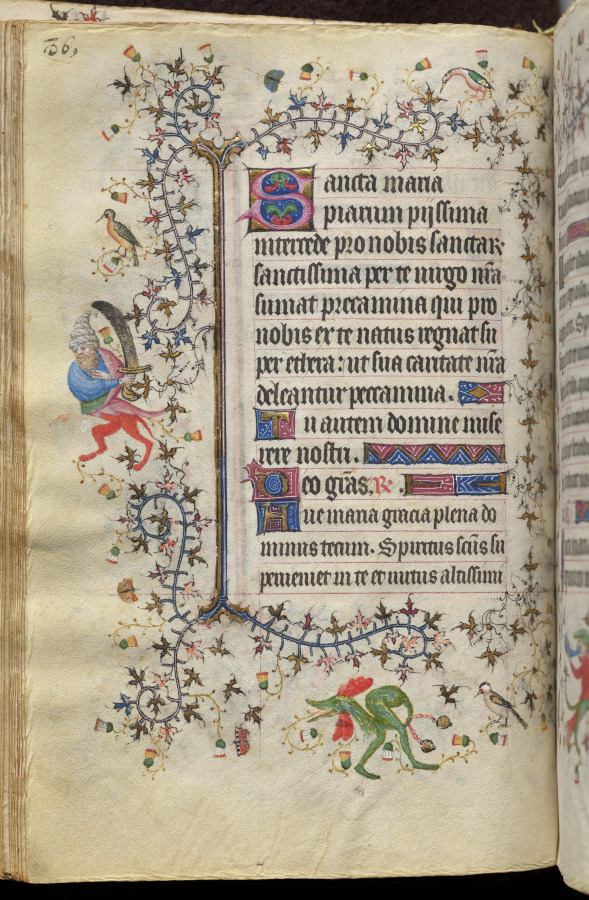 36,
Sancta maria
piarum piissima
intercede pro nobis sanctar̃
sanctissima per te uirgo nr̃a
sumat precamina qui pro
nobis ex te natus regnat su
per ethera: ut sua caritate nr̃a
deleantur peccamina.
Tu autem domine mise
rere nostri.
Deo grãs. R̃e.
Aue maria gracia plena do
minus tecum. Spiritus sc̃us su
perueniet in te et uirtus altissimi